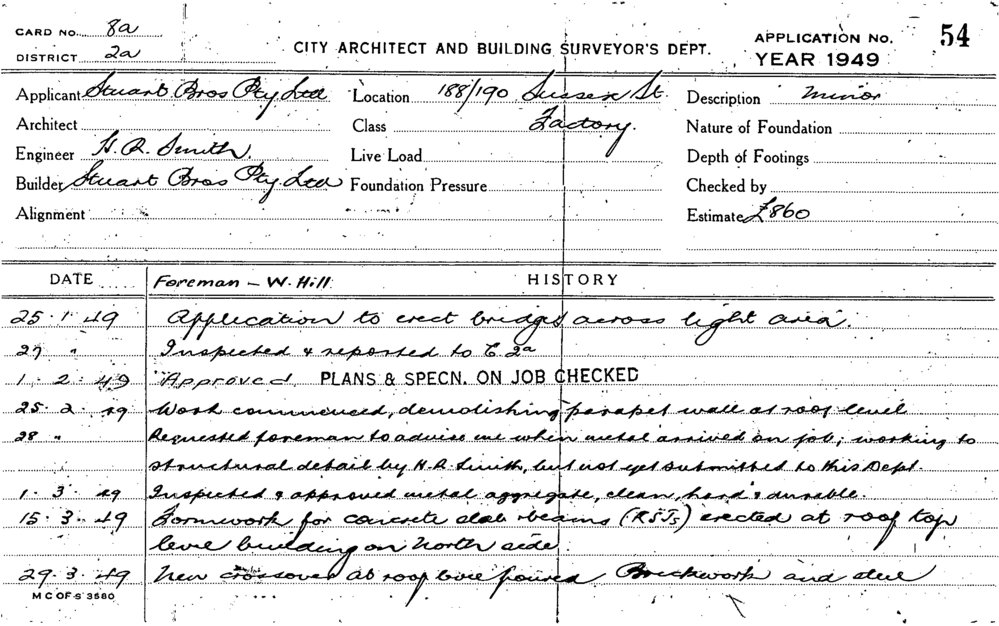 CARD No. 8a
DISTRICT 2a
CITY ARCHITECT AND BUILDING SURVEYOR'S DEPT.
APPLICATION No. 54
YEAR 1949
Applicant Stuart Bros Pty Ltd Location 188/190 Sussex St. Description Minor
Architect Class Factory. Nature of Foundation
Engineer H. R. Smith. Live Load Depth of Footings
Builder Stuart Bros Pty Ltd Foundation Pressure Checked by
Alignment Estimate £860
DATE Foreman - W. Hill HISTORY
25.1.49 Application to erect bridges across light area.
27 " Inspected & reported to C. 2a
1.2.49 Approved PLANS & SPECN. ON JOB CHECKED
25.2.49 Work commenced, demolishing parapet wall at roof level
28 " Requested foreman to advise me when metal arrived on job; working to
structural detail by H.R. Smith, but not yet submitted to this Dept.
1.3.49 Inspected & approved metal aggregate, clean, hard & durable.
15.3.49 Formwork for concrete slab & beams (R.S.Js) erected at roof top
level building on North side.
29.3.49 New crossover at roof level poured Brickwork and
M C OF S 3580